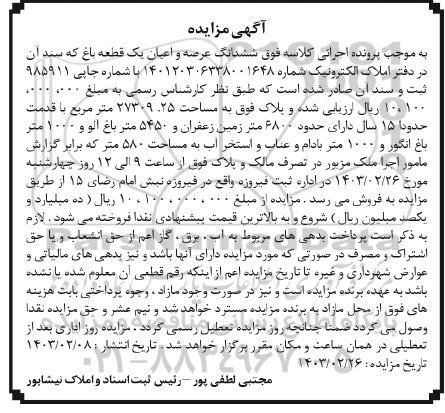 آگهی مزایده
به موجب پرونده اجرائی کلاسه فوق ششدانگ عرصه و اعیان یک قطعه باغ که سند آن
در دفتر املاک الکترونیک شماره ۱۴۰۱۲۰۳۰۶۳۳۸۰۰۱۶۴۸ با شماره چاپی ۹۸۵۹۱۱
ثبت و سند آن صادر شده است که طبق نظر کارشناس رسمی به مبلغ ۰۰۰،۰۰۰،
۱۰،۱۰۰ ریال ارزیابی شده و پلاک فوق به مساحت ۲۵. ۲۷۳۰۹ متر مربع با قدمت
حدودا ۱۵ سال دارای حدود ۶۸۰۰ متر زمین زعفران و ۵۴۵۰ متر باغ آلو و ۱۰۰۰ متر
باغ انگور و ۱۰۰۰ متر بادام و عناب و استخر آب به مساحت ۵۸۰ متر که برابر گزارش
مامور اجرا ملک مزبور در تصرف مالک و پلاک فوق از ساعت ۹ الی ۱۲ روز چهارشنبه
مورخ ۱۴۰۳/۰۲/۲۶ در اداره ثبت فیروزه واقع در فیروزه نبش امام رضای ۱۵ از طریق
مزایده به فروش می رسد . مزایده از مبلغ ۱۰،۱۰۰،۰۰۰،۰۰۰ ریال ( ده میلیارد و
یکصد میلیون ریال ) شروع و به بالاترین قیمت پیشنهادی نقدا فروخته می شود . لازم
به ذکر است پرداخت بدهی های مربوط به آب ، برق ، گاز اعم از حق انشعاب و یا حق
اشتراک و مصرف در صورتی که مورد مزایده دارای آنها باشد و نیز بدهی های مالیاتی و
عوارض شهرداری و غیره تا تاریخ مزایده اعم از اینکه رقم قطعی آن معلوم شده یا نشده
باشد به عهده برنده مزایده است و نیز در صورت وجود مازاد ، وجوه پرداختی بابت هزینه
های فوق از محل مازاد به برنده مزایده مسترد خواهد شد و نیم عشر و حق مزایده نقدا
وصول می گردد ضمنا چنانچه روز مزایده تعطیل رسمی گردد ، مزایده روز اداری بعد از
تعطیلی در همان ساعت و مکان مقرر برگزار خواهد شد . تاریخ انتشار : ۱۴۰۳/۰۲/۰۸
تاریخ مزایده : ۱۴۰۳/۰۲/۲۶
مجتبی لطفی پور – رئیس ثبت اسناد و املاک نیشابور